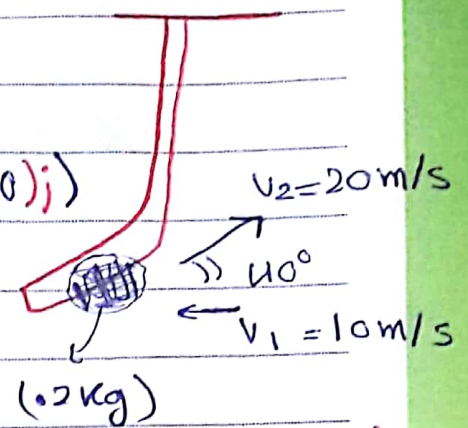 0)j)
V2=20m/s
40°
V1 = 10m/s
(.2kg)